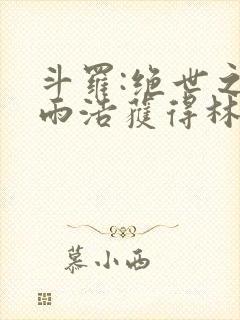 斗羅:绝世之
雨浩獲得林
慕小西